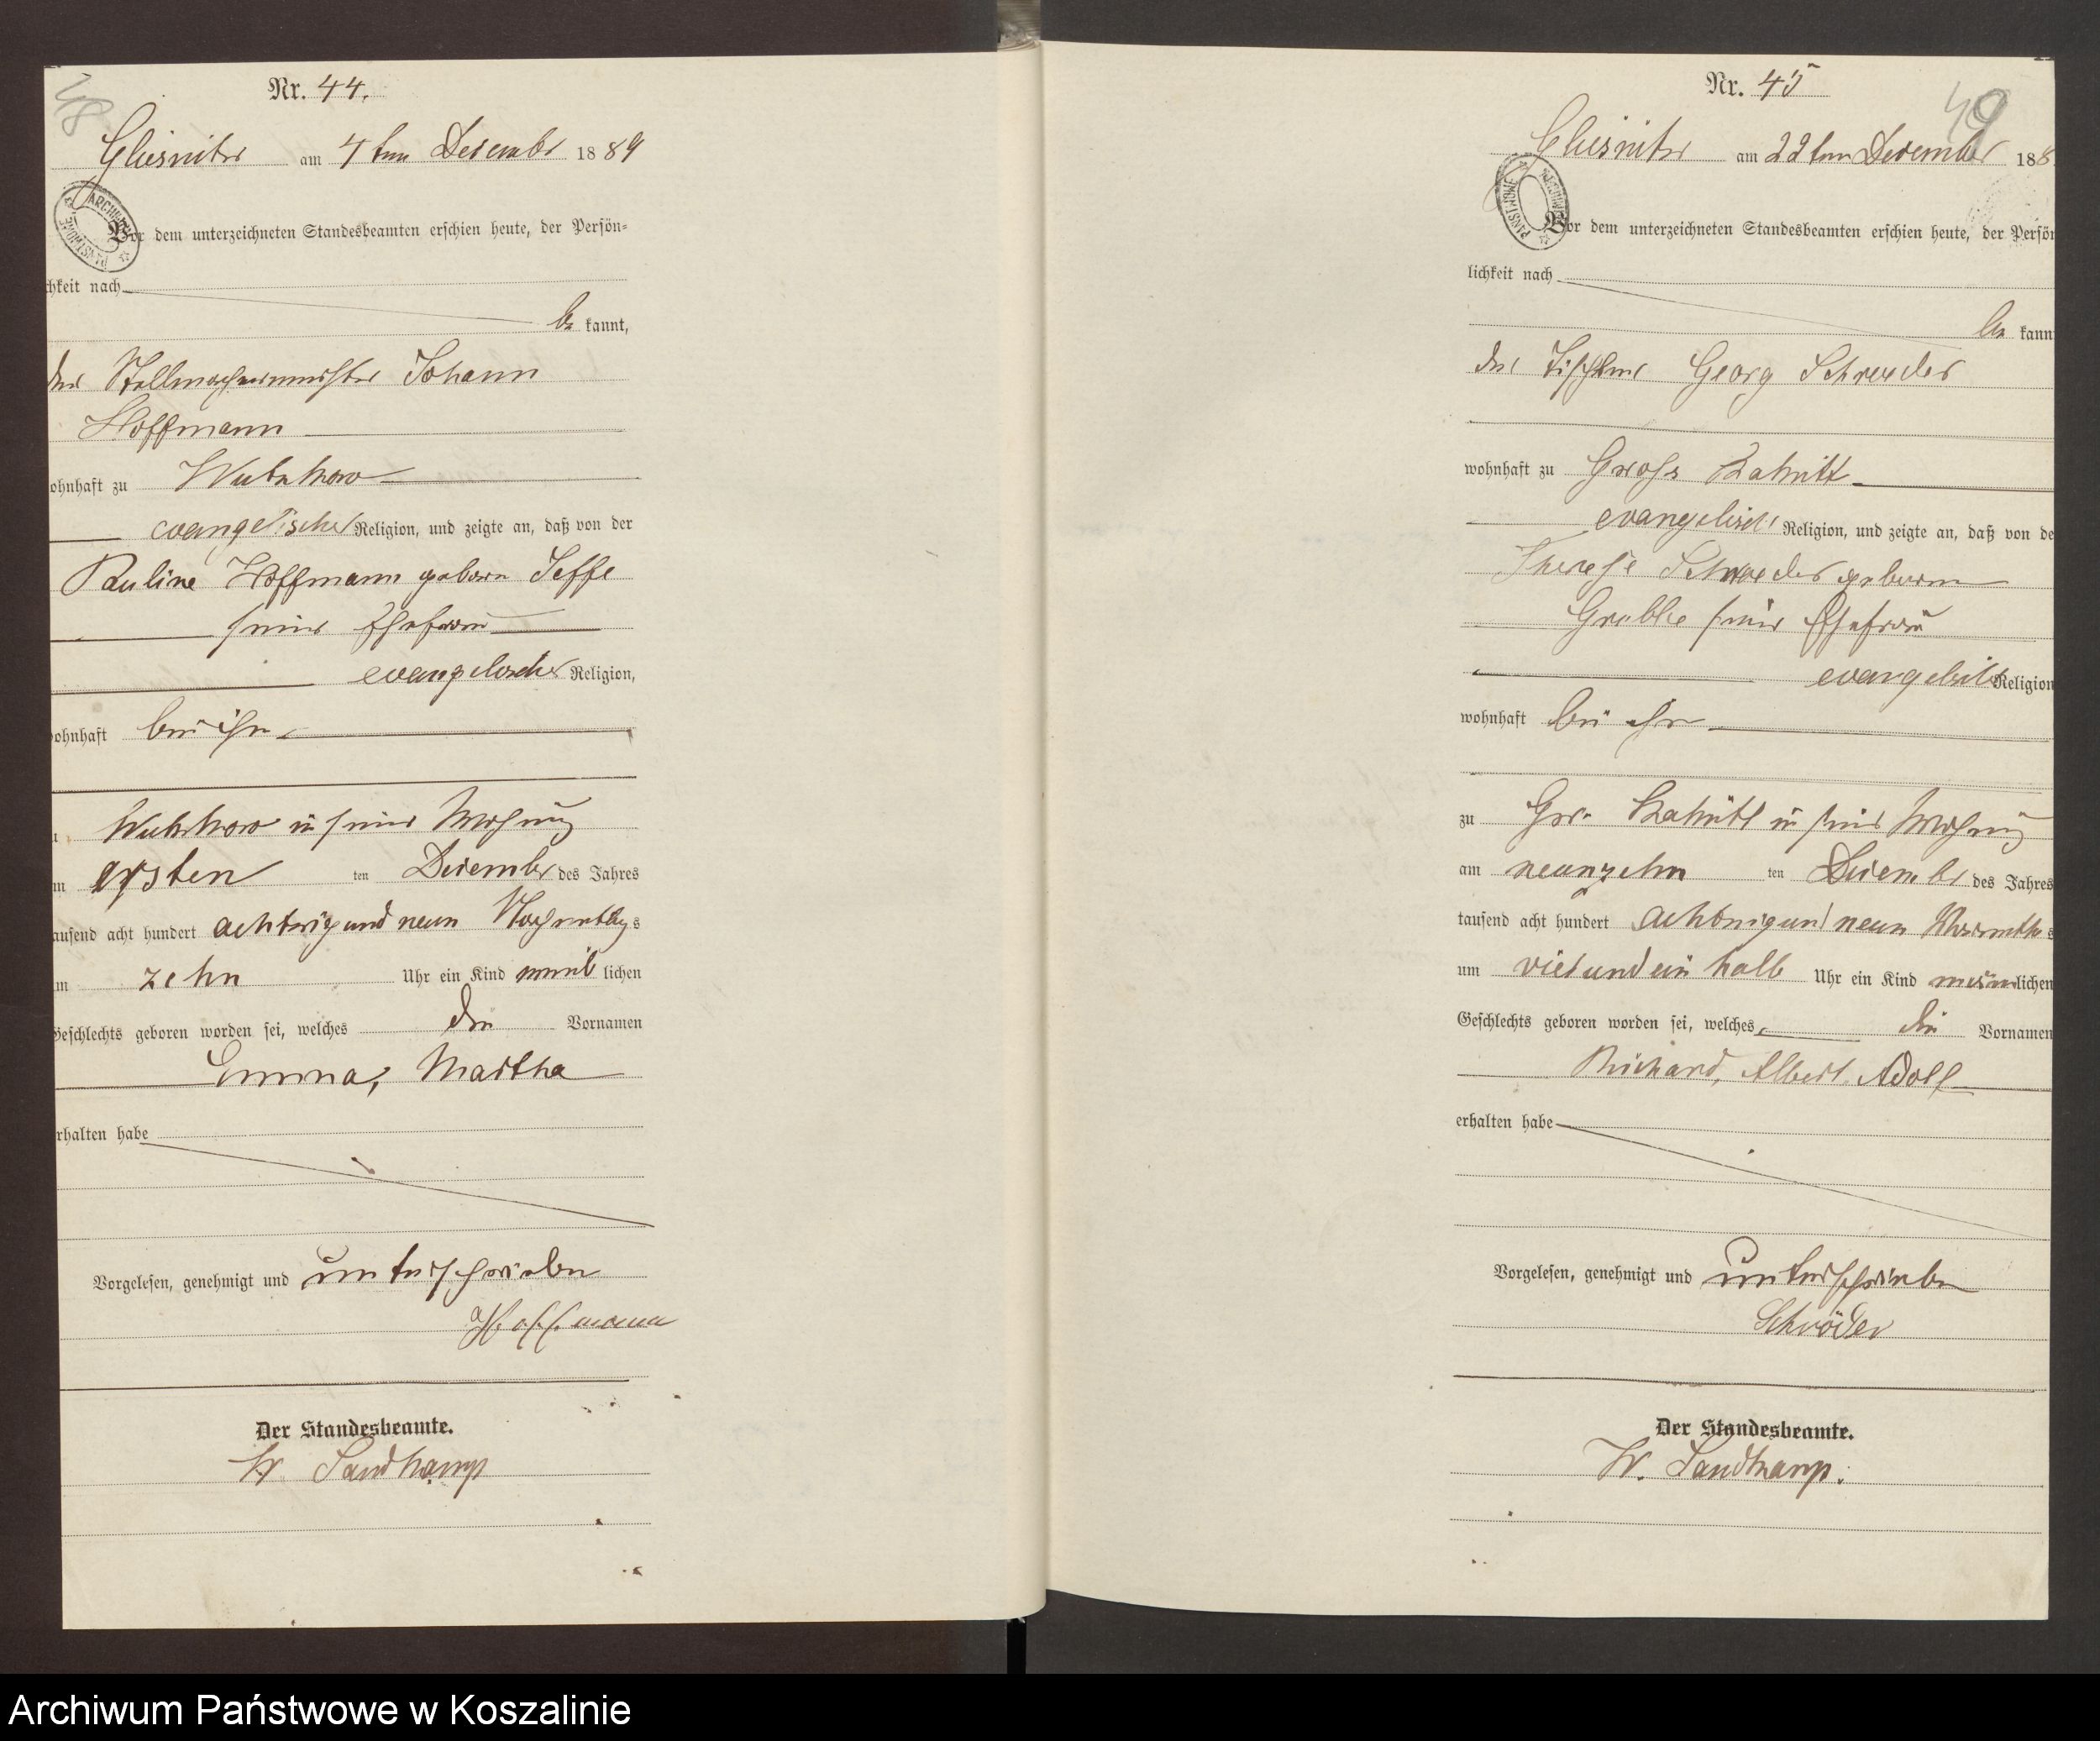 48
Nr. 44.
Gliesnitz am 4ten Dezember 1889
ARCHIWUM PAŃSTWOWE
Vor dem unterzeichneten Standesbeamten erschien heute, der Persön=
chkeit nach
be kannt,
der Stellmachermeister Johann
Hoffmann
ohnhaft zu Wutzkow
evangelischer Religion, und zeigte an, daß von der
Pauline Hoffmann geboren Jeffe
seiner Ehefrau
evangelischer Religion,
ohnhaft bei ihm
Wutzkow in seiner Wohnung
ersten ten Dezember des Jahres
ausend acht hundert achtzig und neun Nachmittags
m zehn Uhr ein Kind weib lichen
Geschlechts geboren worden sei, welches die Vornamen
Emma, Martha
rhalten habe
Vorgelesen, genehmigt und unterschrieben
Hoffmann
Der Standesbeamte.
W. Sandkamp
49
Nr. 45
Gliesnitz am 22ten Dezember 188
ARCHIWUM PAŃSTWOWE
Vor dem unterzeichneten Standesbeamten erschien heute, der Persön
lichkeit nach
be kann
der Tischler Georg Schroeder
wohnhaft zu Gross Rakitt
evangelischer Religion, und zeigte an, daß von de
Therese Schroeder geboren
seiner Ehefrau
evangelischer Religion
wohnhaft bei ihm
zu Gr. Rakitt in seiner Wohnung
am neunzehn ten Dezember des Jahres
tausend acht hundert achtzig und neun Vormittags
um vier und ein halb Uhr ein Kind männlichen
Geschlechts geboren worden sei, welches die Vornamen
Richard, Albert Adolf
erhalten habe
Vorgelesen, genehmigt und unterschrieben
Schröder
Der Standesbeamte.
W. Sandkamp.
Archiwum Państwowe w Koszalinie